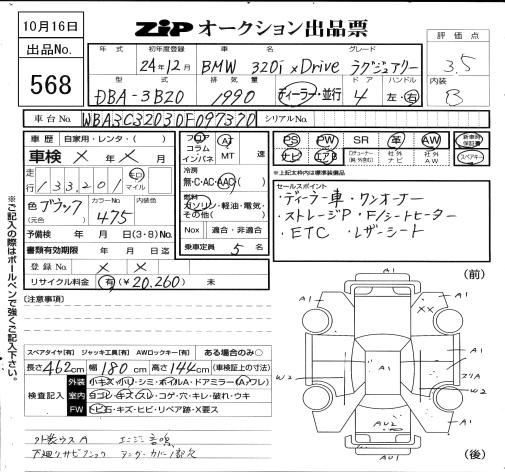 10月16日
ZiP オークション出品票
評価点
3.5
内装
B
出品No.
568
年式 初年度登録 車名 グレード
24年12月 BMW 320i xDrive ラグジュアリー
型式 排気量 ドア ハンドル
DBA-3B20 1990 ディーラー・並行 4 左・右
車台No. WBA3C32030DF097370 シリアルNo.
車歴 自家用・レンタ・( )
車検 × 年 × 月
走行 133,201 Km マイル
色 ブラック カラーNo. 475 内装色
(元色)
予備検 年 月 日(3・8)No.
書類有効期限 年 月 日迄
登録No. × ×
リサイクル料金 有(¥20.260) 未
フロア コラム インパネ AT MT 速
冷房
無・C・AC・AAC( )
燃料
ガソリン・軽油・電気・
その他( )
Nox 適合・非適合
乗車定員 5 名
PS PW SR 革 AW 新車時保証書
ナビ エアB 社外ナビ 社外AW スペアキー
*上記太枠内は標準装備品
セールスポイント
・ディーラー車・ワンオーナー
・ストレージP・F/シートヒーター
・ETC・レザーシート
※ご記入の際はボールペンで強くご記入下さい。
(注意事項)
スペアタイヤ[有] ジャッキ工具[有] AWロックキー[有] ある場合のみ○
長さ462cm 幅180cm 高さ144cm(車検証上の寸法)
検査記入
外装 小キズ・小リ・シミ・ホイルA・ドアミラー(A・ワレ)
室内 ヨゴレ・キズ・スレ・コゲ・穴・キレ・破れ・ウキ
FW トビ石・キズ・ヒビ・リペア跡・X要ス
外装ウスA エンジン音鳴
下廻りサビ アンダーカバー
(前)
A1
A1
XX
A1
A1
W2
ワリA
W2
A1
AU2
A1
(後)